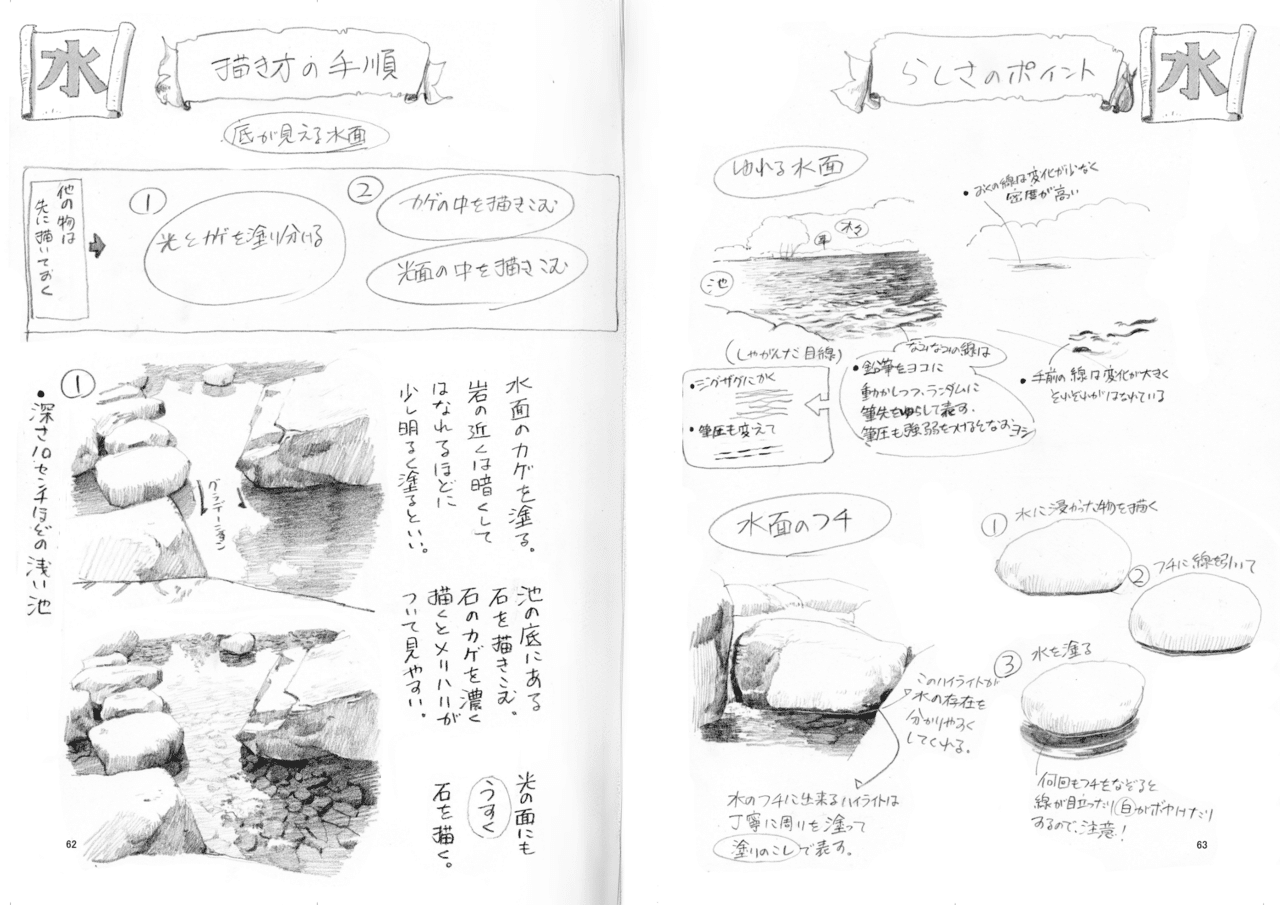 水
描き方の手順
底が見える水面
他の物は
先に描いておく
①
光とカゲを塗り分ける
②
カゲの中を描きこむ
光面の中を描きこむ
①
・深さ10センチほどの浅い池
グラデーション
水面のカゲを塗る。
岩の近くは暗くして
はなれるほどに
少し明るく塗るといい。
池の底にある
石を描きこむ。
石のカゲを濃く
描くとメリハリが
ついて見やすい。
光の面にも
うすく
石を描く。
62
らしさのポイント
水
ゆれる水面
・おくの線は変化が少なく
密度が高い
木々
草
池
(しゃがんだ目線)
・ジグザグにかく
・筆圧も変えて
なみなみの線は
・鉛筆をヨコに
動かしつつ、ランダムに
筆先をゆらして表す。
筆圧も強弱を付けるとなおヨシ
・手前の線は変化が大きく
それぞれがはなれている
水面のフチ
① 水に浸かった物を描く
② フチに線を引いて
③ 水を塗る
このハイライトが
水の存在を
分かりやすく
してくれる。
水のフチに出来るハイライトは
丁寧に周りを塗って
塗りのこしで表す。
何回もフチをなぞると
線が目立ったり白がボヤけたり
するので、注意!
63